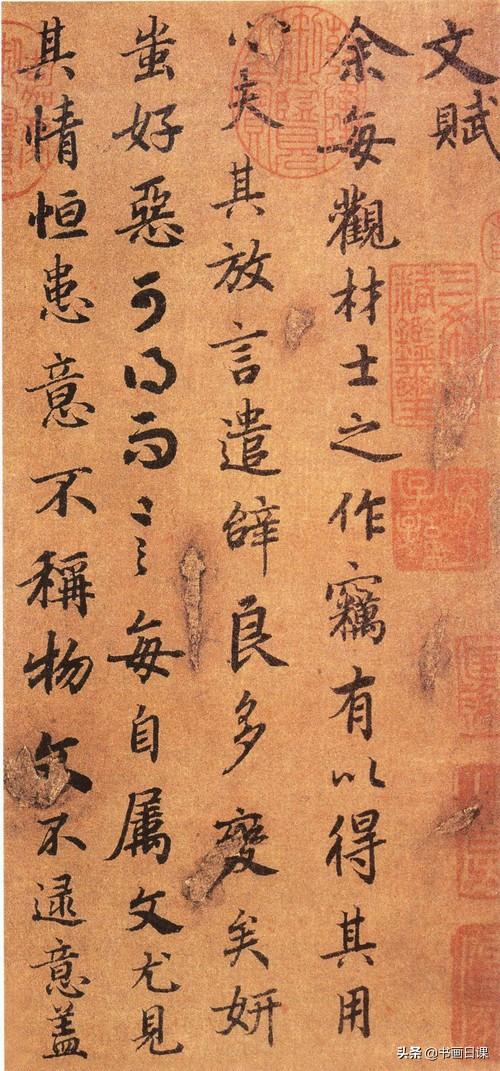 文賦
余每觀材士之作竊有以得其用
心夫其放言遣辭良多變矣妍
蚩好惡可得而言每自屬文尤見
其情恒患意不稱物文不逮意蓋
三希堂精鑑璽
宜子孫
头条 @书画日课